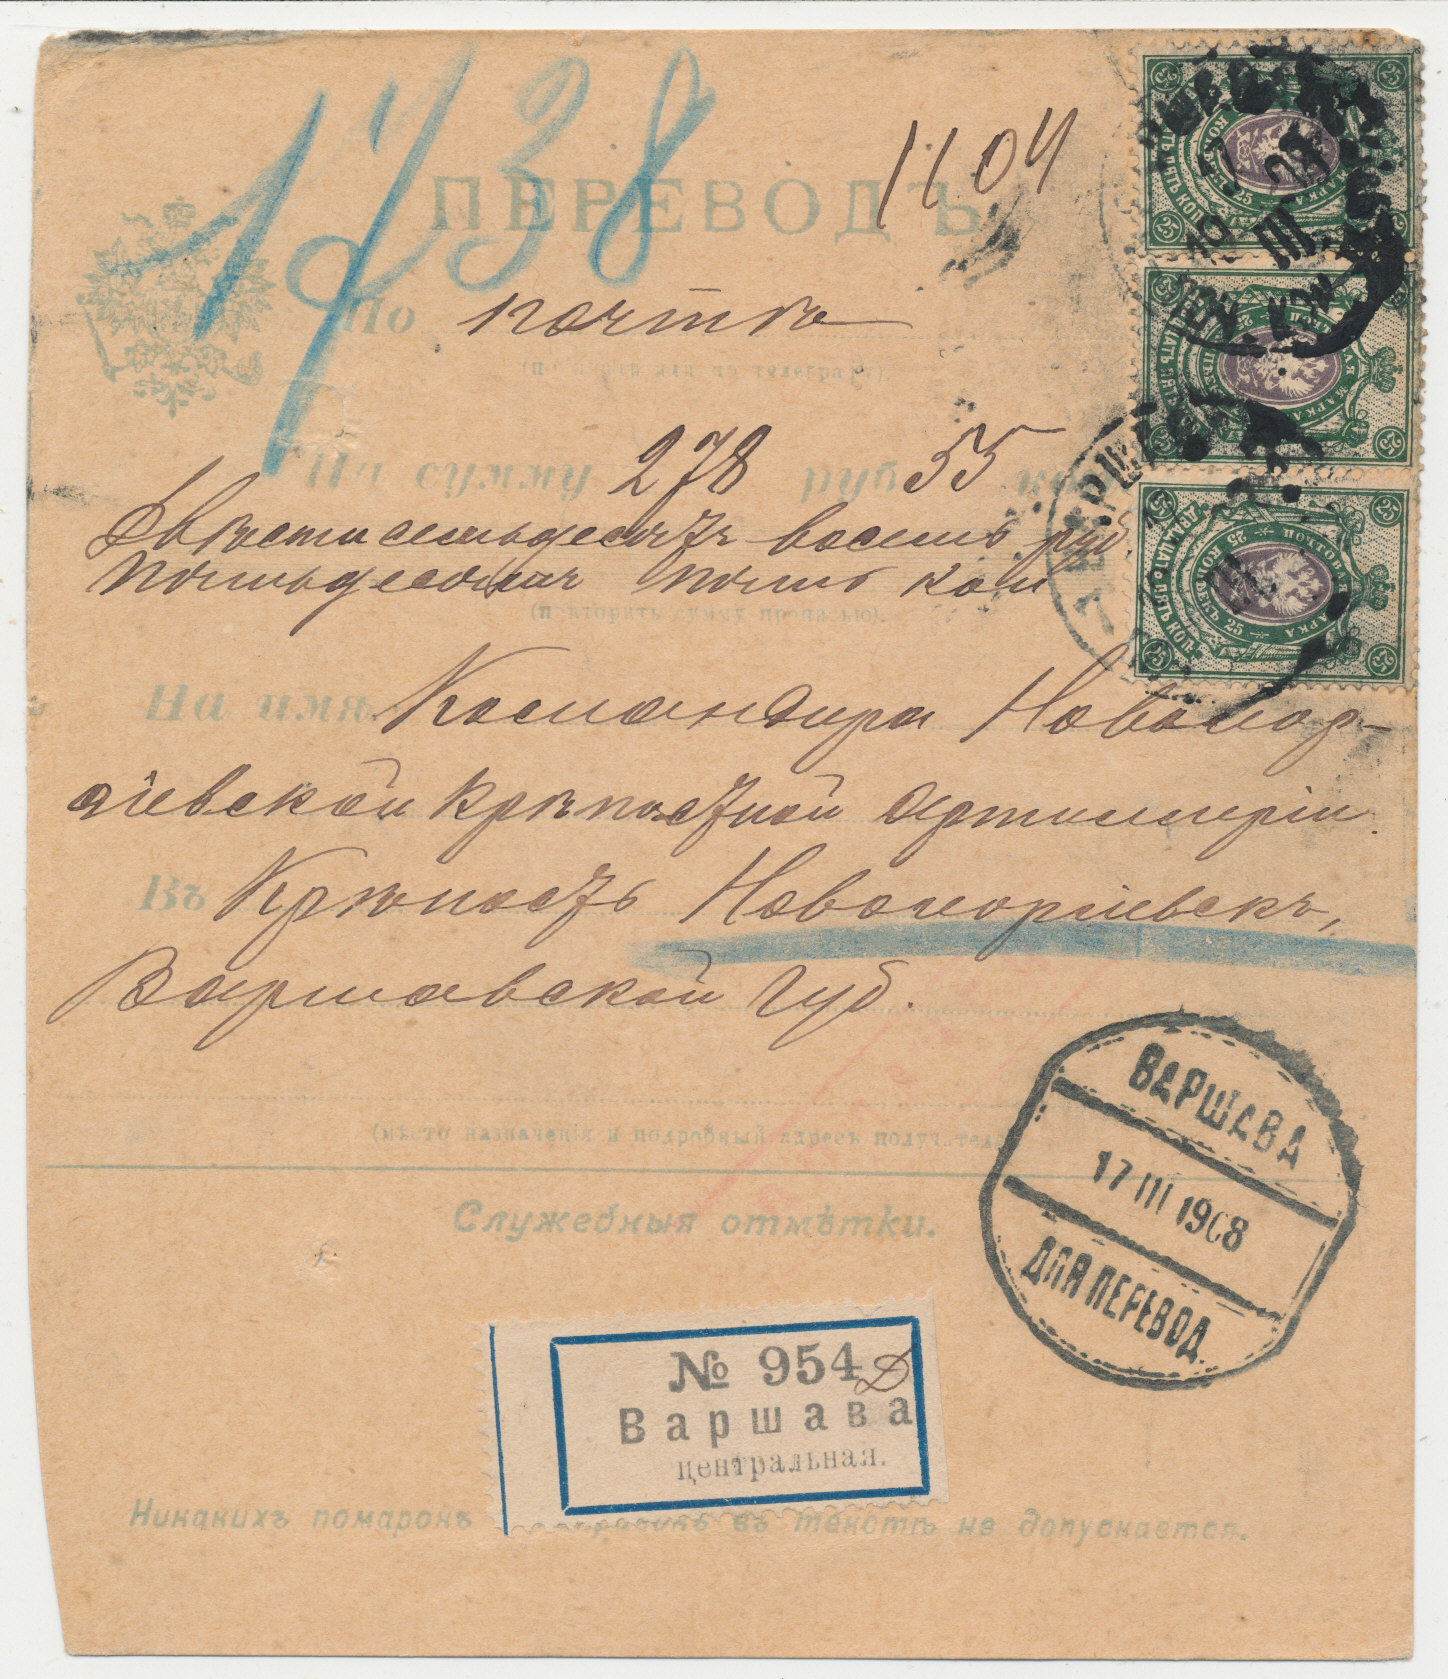 1738
1104
ПЕРЕВОДЪ
По почтѣ
(по почтѣ или по телеграфу)
На сумму 278 руб. 55 коп.
Двѣсти семьдесятъ восемь руб.
пятьдесятъ пять коп
(повторить сумму прописью).
На имя Командира Новогеор-
гіевской Крѣпостной Артиллеріи
Въ Крѣпость Новогеоргіевскъ,
Варшавской Губ.
(мѣсто назначенія и подробный адресъ получателя
Служебныя отмѣтки.
ВАРШАВА
17 III 1908
ДЛЯ ПЕРЕВОД.
№ 954
Варшава
центральная.
Никакихъ помарокъ въ текстѣ не допускается.
25 25
ДВАДЦАТЬ ПЯТЬ КОП.
ПОЧТОВАЯ МАРКА
25 КОПѢЕКЪ 25
ВАРШАВА